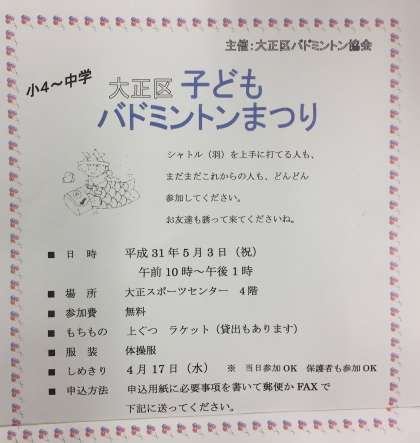 主催：大正区バドミントン協会
小4～中学
大正区 子ども
バドミントンまつり
シャトル（羽）を上手に打てる人も、
まだまだこれからの人も、どんどん
参加してください。
お友達も誘って来てくださいね。
■ 日 時 平成31年5月3日（祝）
午前10時～午後1時
■ 場 所 大正スポーツセンター 4階
■ 参加費 無料
■ もちもの 上ぐつ ラケット（貸出もあります）
■ 服 装 体操服
■ しめきり 4月17日（水） ※ 当日参加OK 保護者も参加OK
■ 申込方法 申込用紙に必要事項を書いて郵便かFAXで
下記に送ってください。